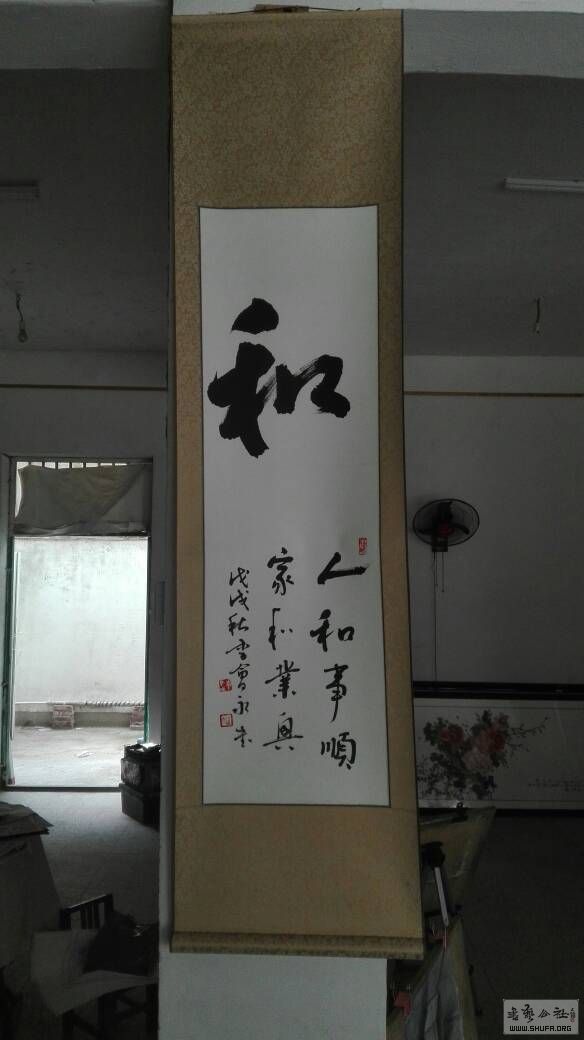 和
人和事順
家和業興
戊戌秋雪會永书
書藝公社
WWW.SHUFA.ORG